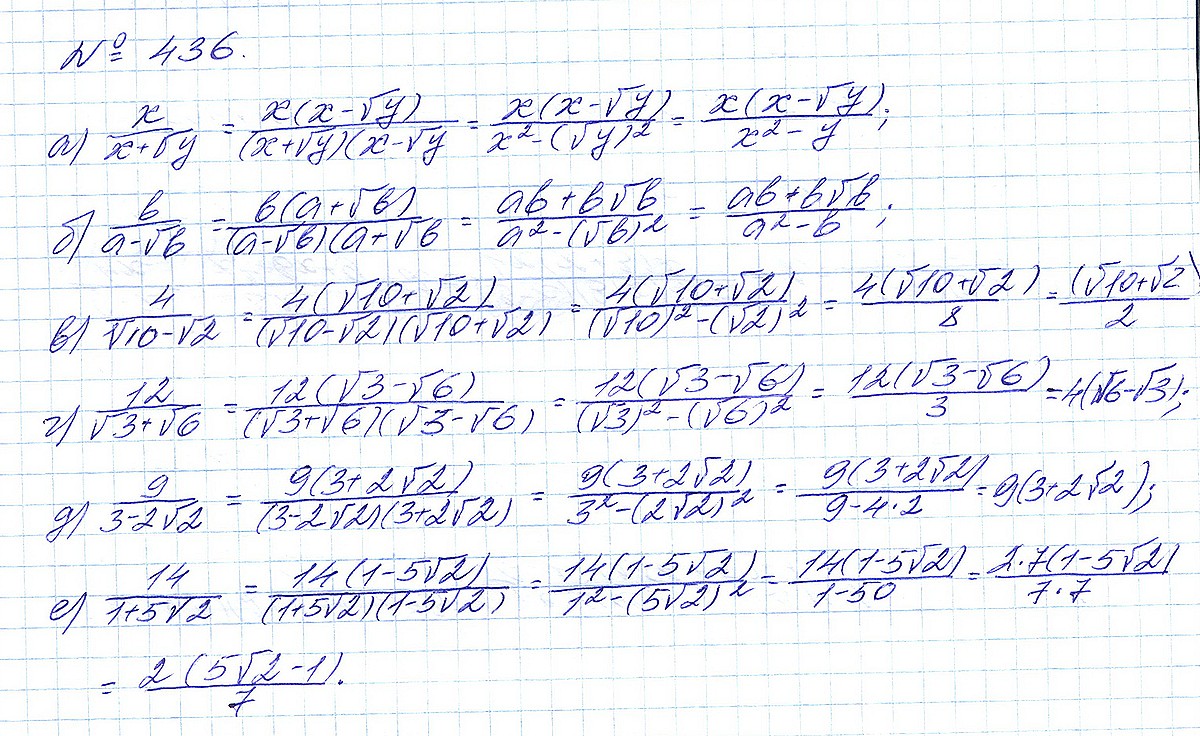 № 436.
а) x/(x+√y) = x(x-√y)/(x+√y)(x-√y = x(x-√y)/x²-(√y)² = x(x-√y)/x²-y;
б) в/(а-√в) = в(а+√в)/(а-√в)(а+√в = ав+в√в/а²-(√в)² = ав+в√в/а²-в;
в) 4/√10-√2 = 4(√10+√2)/(√10-√2)(√10+√2) = 4(√10+√2)/(√10)²-(√2)² = 4(√10+√2)/8 = (√10+√2)/2
г) 12/√3+√6 = 12(√3-√6)/(√3+√6)(√3-√6) = 12(√3-√6)/(√3)²-(√6)² = 12(√3-√6)/3 = 4(√6-√3);
д) 9/3-2√2 = 9(3+2√2)/(3-2√2)(3+2√2) = 9(3+2√2)/3²-(2√2)² = 9(3+2√2)/9-4·2 = 9(3+2√2);
е) 14/1+5√2 = 14(1-5√2)/(1+5√2)(1-5√2) = 14(1-5√2)/1²-(5√2)² = 14(1-5√2)/1-50 = 2·7(1-5√2)/7·7
= 2(5√2-1)/7.